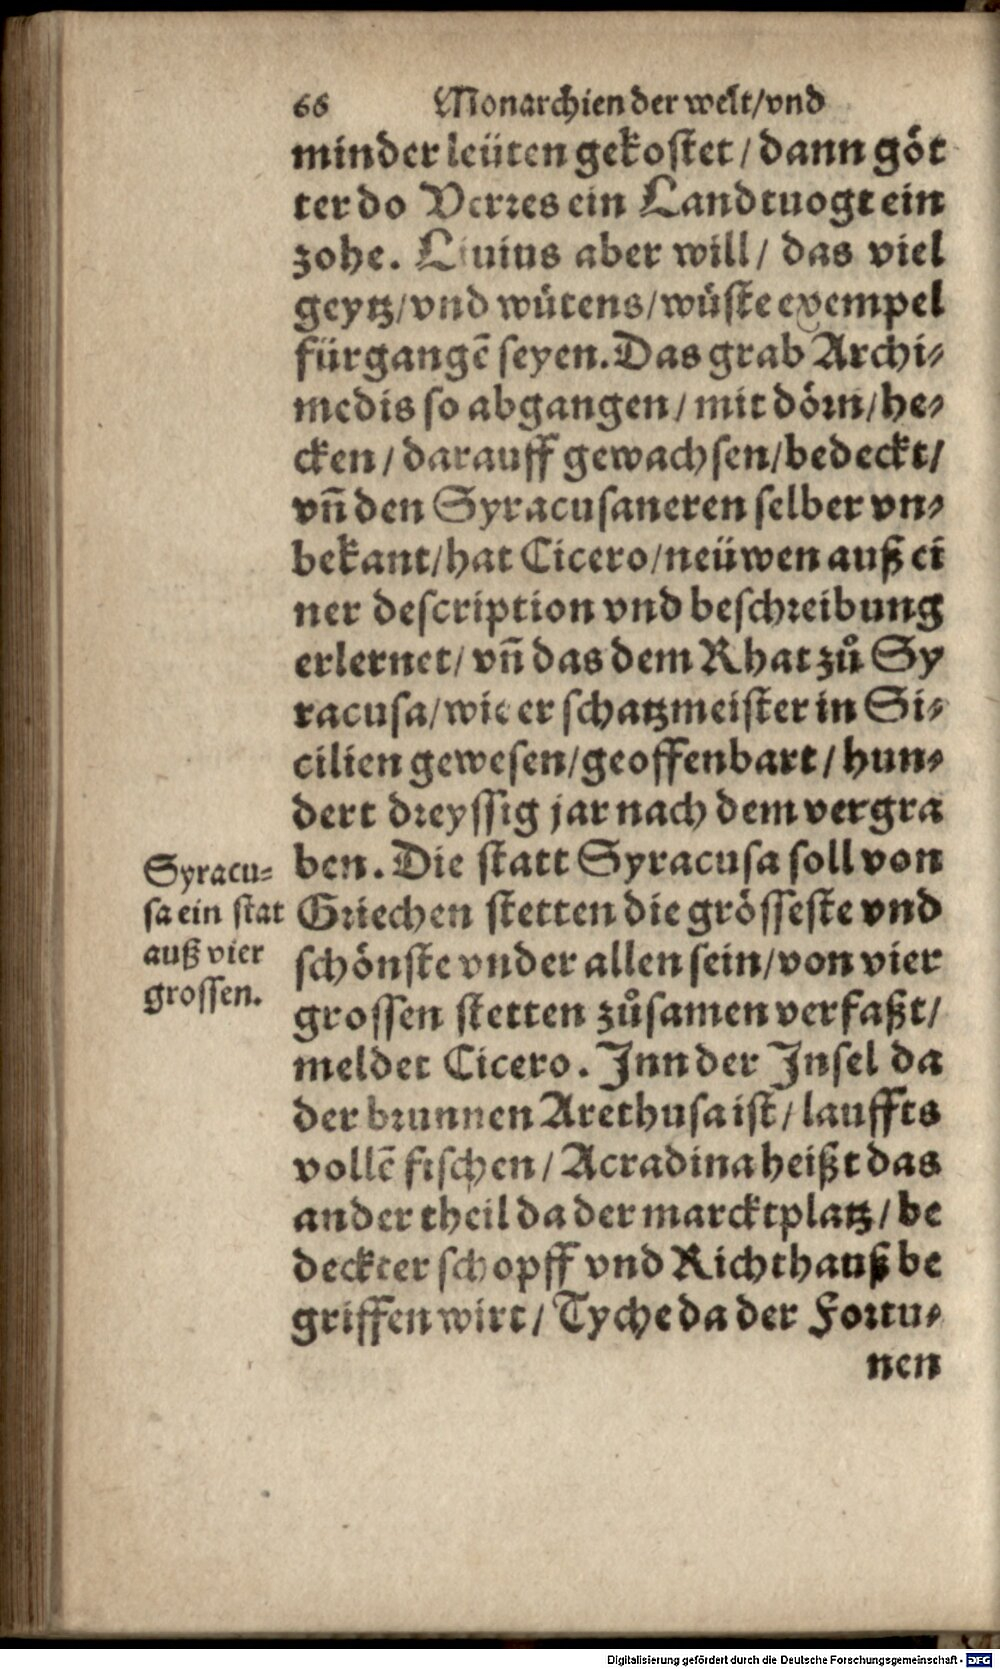 66 Monarchien der welt/vnd
minder leüten gekostet/dann göt
ter do Verres ein Landtuogt ein
zohe. Liuius aber will/das viel
geytz/vnd wütens/wüste exempel
fürgangē seyen. Das grab Archi-
medis so abgangen/mit dörn/he-
cken/darauff gewachsen/bedeckt/
vn̄ den Syracusaneren selber vn-
bekant/hat Cicero/neüwen auß ei
ner description vnd beschreibung
erlernet/vn̄ das dem Rhat zů Sy
racusa/wie er schatzmeister in Si-
cilien gewesen/geoffenbart/hun-
dert dreyssig jar nach dem vergra
ben. Die statt Syracusa soll von
Griechen stetten die grösseste vnd
schönste vnder allen sein/von vier
grossen stetten zůsamen verfaßt/
meldet Cicero. Inn der Insel da
der brunnen Arethusa ist/lauffts
vollē fischen/Acradina heißt das
ander theil da der marcktplatz/be
deckter schopff vnd Richthauß be
griffen wirt/Tyche da der Fortu-
nen
Syracu-
sa ein stat
auß vier
grossen.
Digitalisierung gefördert durch die Deutsche Forschungsgemeinschaft - DFG